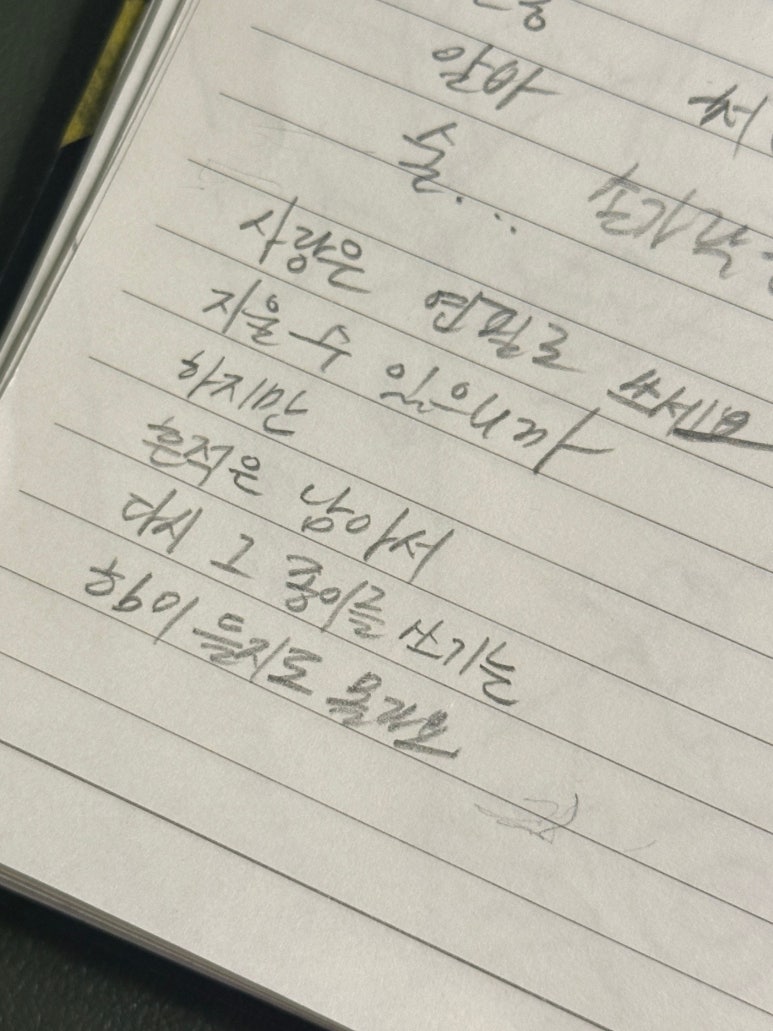 알아
술...
사랑은 연필로 쓰세요
지울 수 있으니까
하지만
흔적은 남아서
다시 그 종이를 쓰기는
힘이 들지도 몰라요